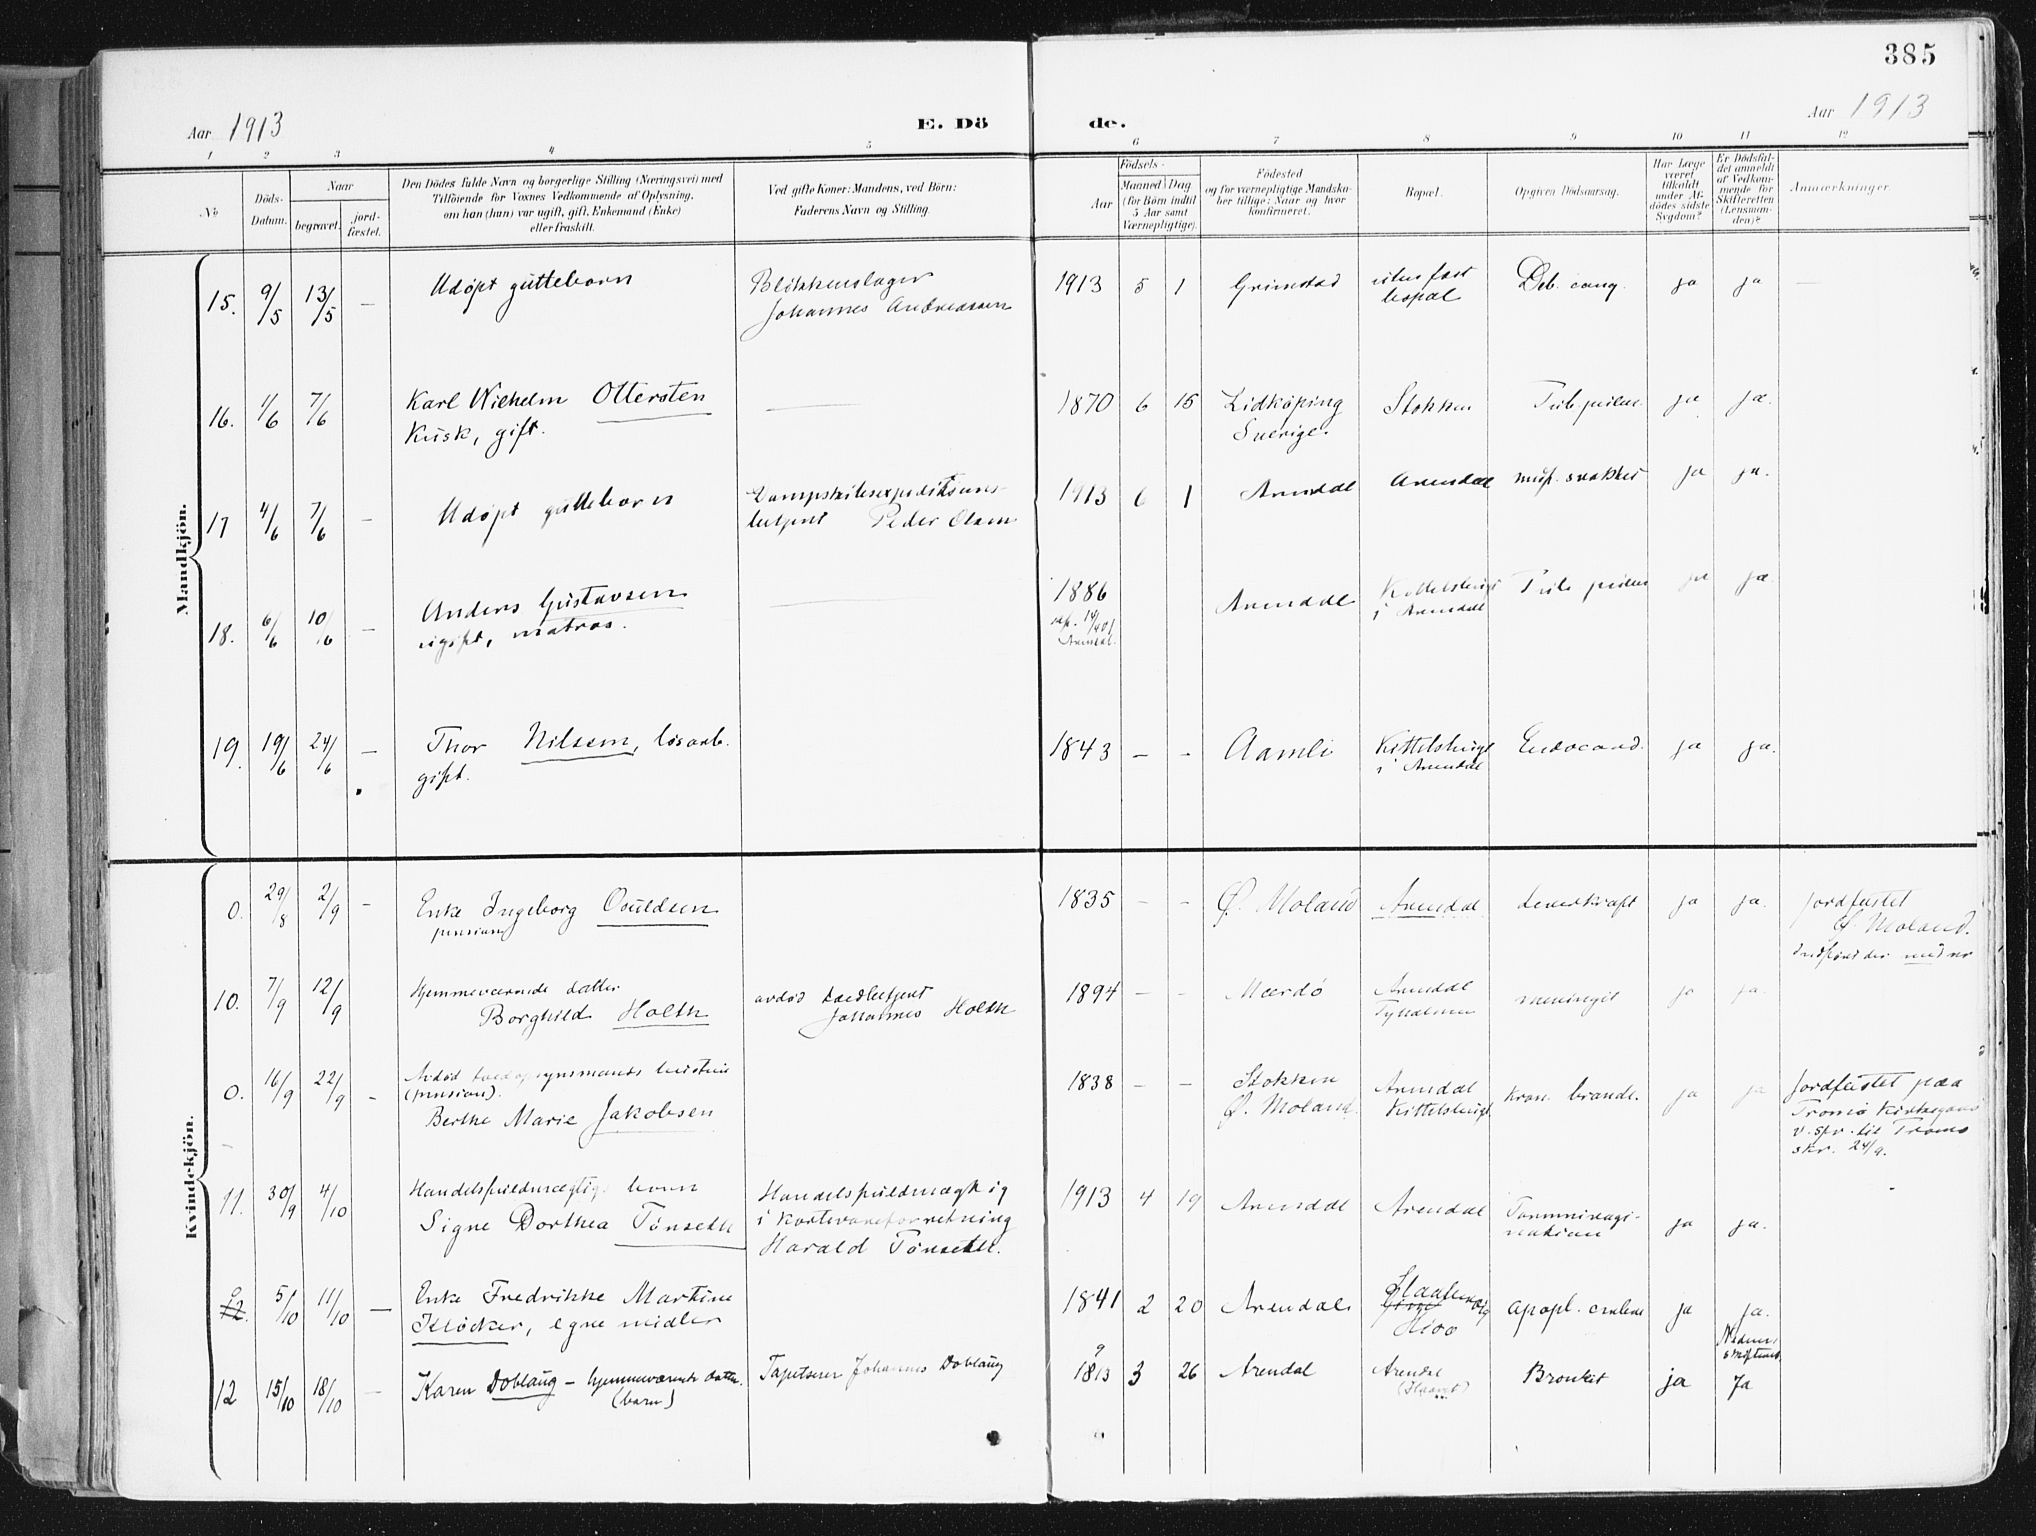 385
Aar 1913
E. Dö de.
Aar 1913
1 2 3 4 5 6 7 8 9 10 11 12
No
Döds-Datum.
Naar
begravet.
jord-fæstet.
Den Dödes fulde Navn og borgerlige Stilling (Næringsvei) med
Tilföiende for Voxnes Vedkommende af Oplysning,
om han (hun) var ugift, gift, Enkemand (Enke)
eller fraskilt.
Ved gifte Koner: Mandens, ved Börn:
Faderens Navn og Stilling.
Födsels-
Aar
Maaned Dag
(for Börn indtil
5 Aar samt
Værnepligtige).
Födested
og for værnepligtige Mandska-
ber tillige: Naar og hvor
konfirmeret.
Bopæl.
Opgiven Dödsaarsag.
Har Læge
været
tilkaldt
under Af-
dödes sidste
Sygdom?
Er Dödsfal-
det anmeldt
af Vedkom-
mende for
Skifteretten
(Lensman-
den)?
Anmærkninger.
Mandkjön.
15. 9/5 13/5 — Udøpt guttebarn Blikkenslager
Johannes Andreassen 1913 5 1 Grimstad uten fast
bopæl Deb. cong. ja ja —
16. 1/6 7/6 Karl Wilhelm Ottersten
Kusk, gift. — 1870 6 15 Lidköping
Sverige. Stokken Tub. pulm. ja ja.
17 4/6 7/6 — Udøpt guttebarn Dampskibsexpeditions-
betjent Peder Olsen 1913 6 1 Arendal Arendal svakhet ja ja.
18. 6/6 10/6 — Anders Gustavsen
ugift, matros. — 1886
Arendal. Arendal Kittelsbugt
i Arendal Tub. pulm ja ja.
19. 19/6 24/6 — Thor Nilsen, løsarb.
gift. 1843 — - Aamli Kittelsbugt
i Arendal Endocard. ja ja.
Kvindekjön.
0. 29/8 2/9 — Enke Ingeborg Osuldsen
pension 1835 - - Ø. Moland Arendal ja ja. Jordfæstet
Ø. Moland.
10. 7/9 12/9 Hjemmeværende datter
Borghild Holth avdød toldbetjent
Johannes Holth 1894 — - Mærdø Arendal
Tyholmen meningit ja ja.
0. 16/9 22/9 - Avdød toldopsynsmands hustru
(pension).
Berthe Marie Jakobsen 1838 - - Stokken
Ø. Moland. Arendal
Kittelsbugt kron. bronch. ja ja Jordfæstet paa
Tromø Kirkegaard
v. spr. til Tromø
skr. 24/9.
11. 30/9 4/10 Handelsfuldmægtigs barn
Signe Dorthea Tønseth Handelsfuldmægtig
i kortevareforretning
Harald Tønseth. 1913 4 19 Arendal Arendal ja ja.
0 12. 5/10 11/10 — Enke Fredrikke Martine
Kløcker, egne midler 1841 2 20 Arendal
Hisø apopl. ja ja.
12 15/10 18/10 — Karen Doblaug - hjemmeværende datter
(barn) Tapetserer Johannes Doblaug 1913 3 26 Arendal Arendal Bronkit ja Ja